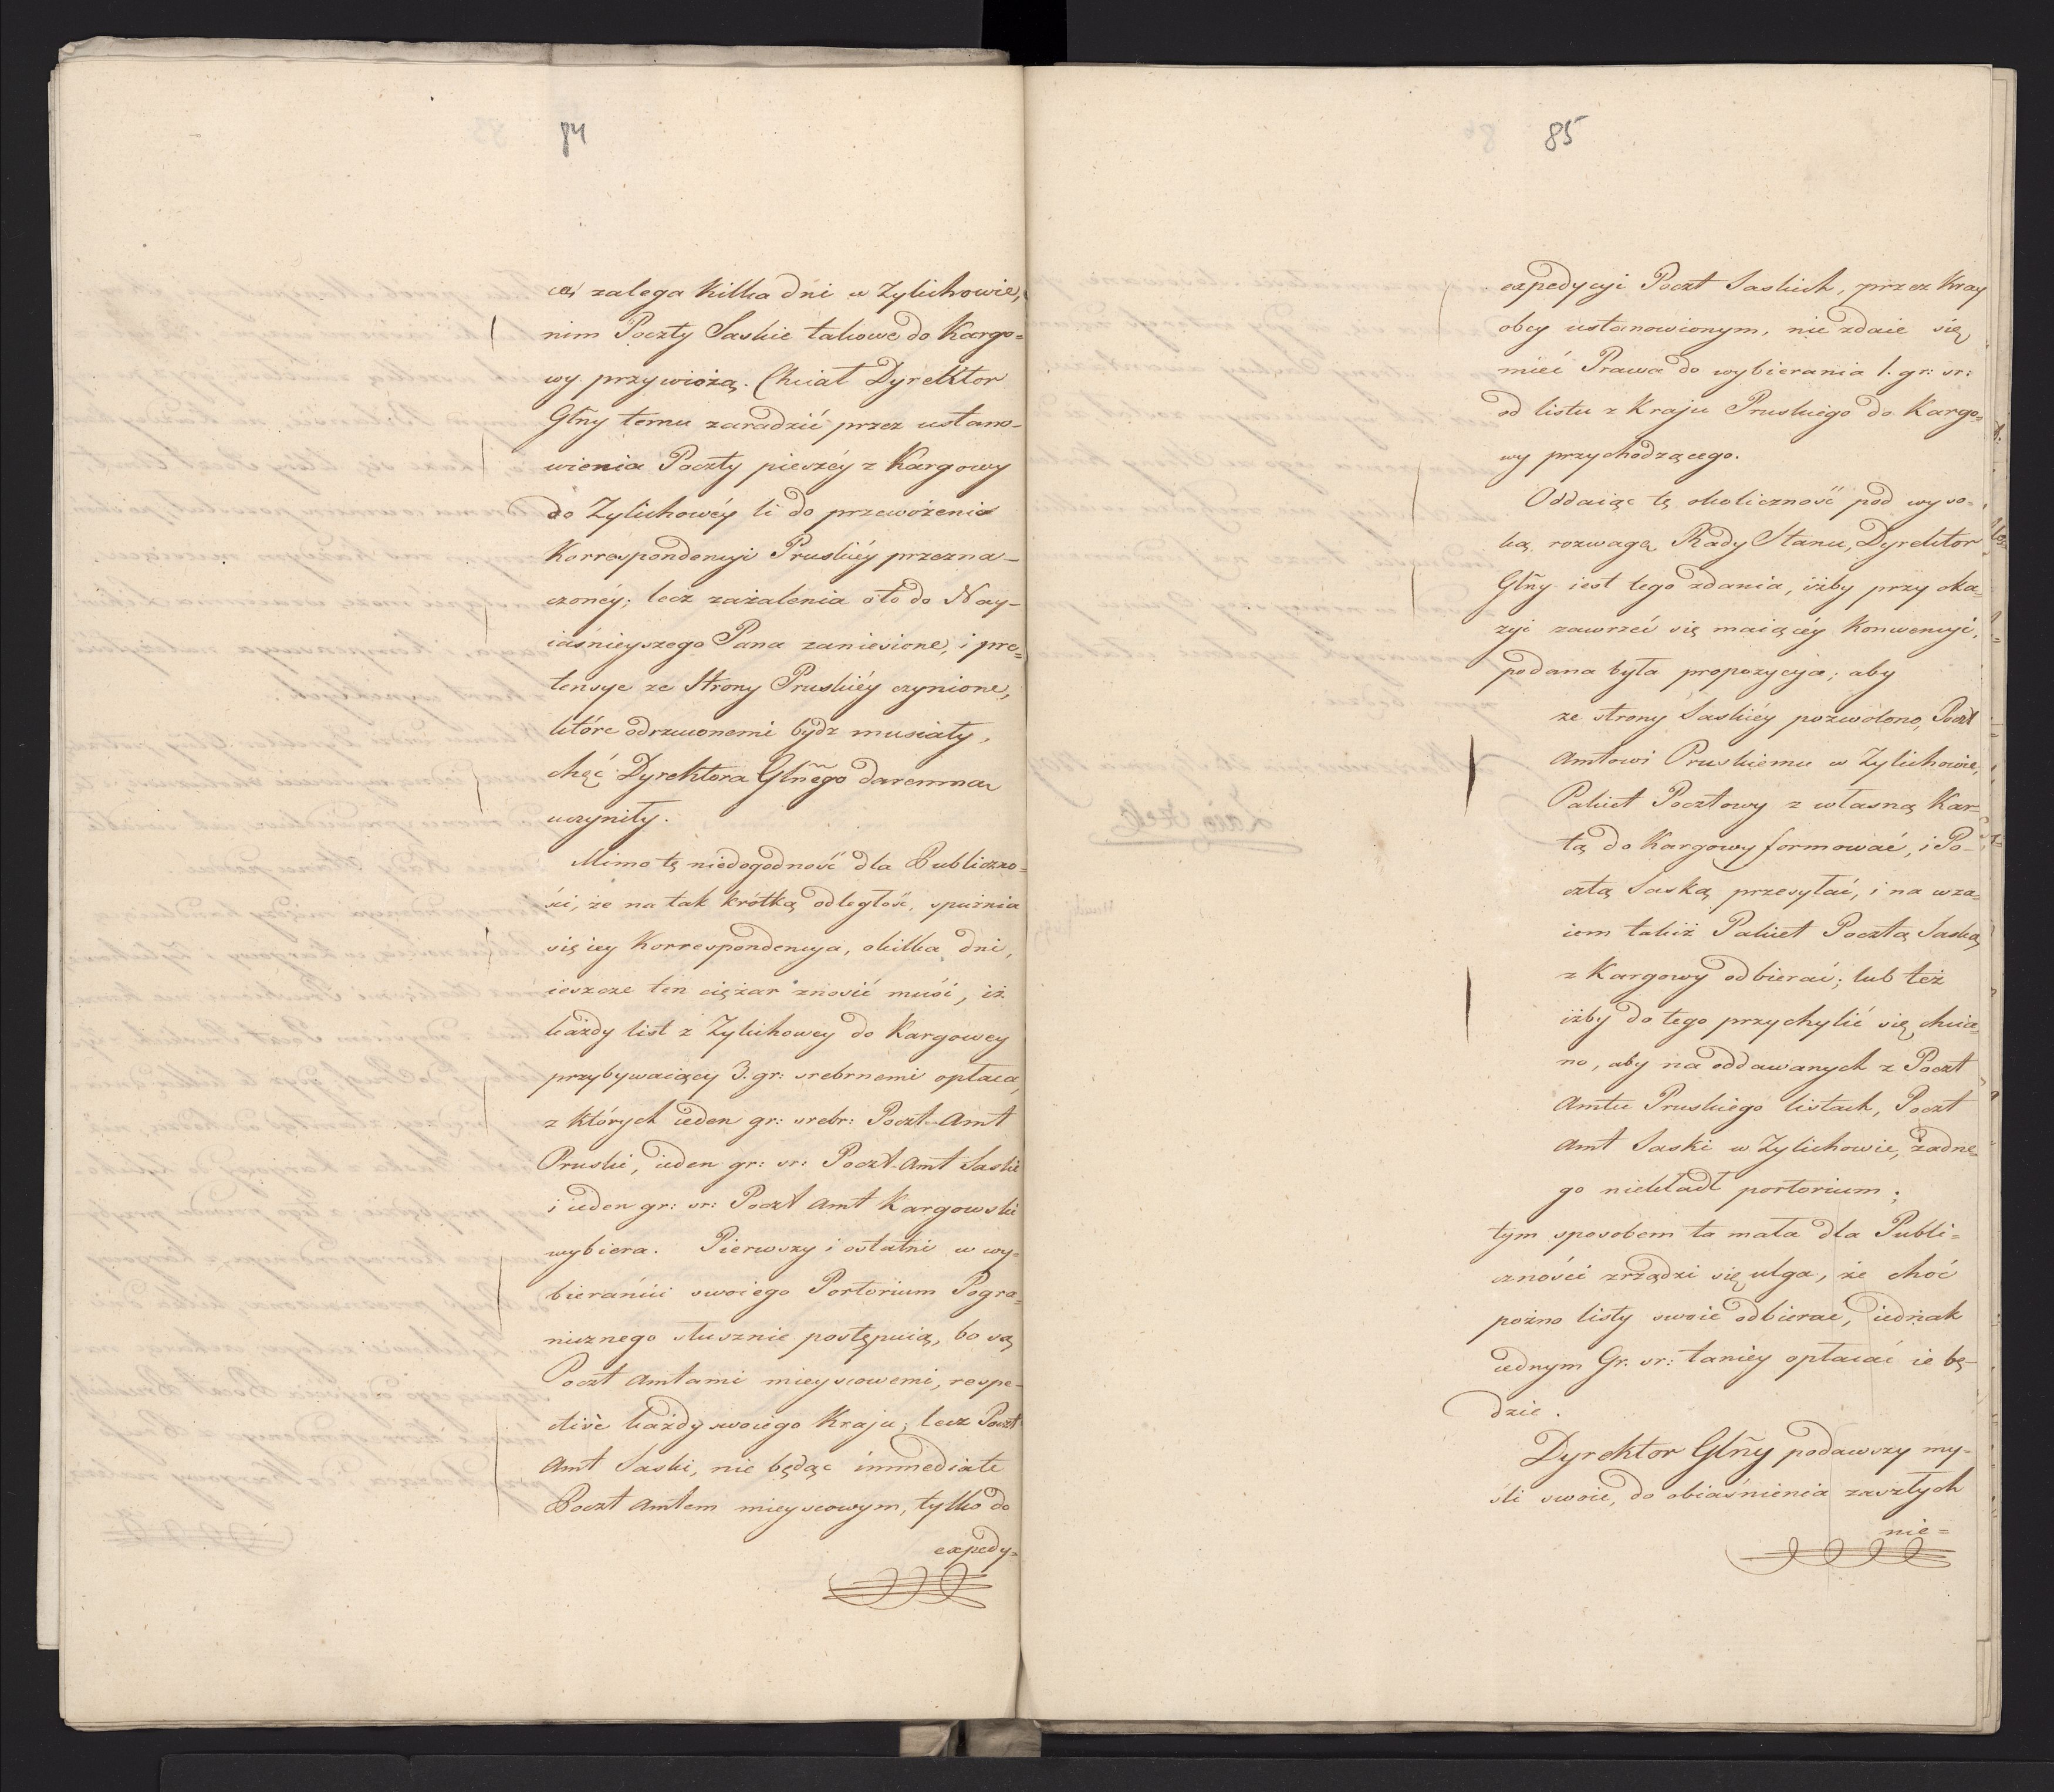 84
cej zalega kilka dni w Zylichowie,
nim Poczty Saskie takowe do Kargo=
wy przywiozą. Chciał Dyrektor
Głny temu zaradzić przez ustano-
wienia Poczty pieszéy z Kargowy
do Zylichowéy li do przewożenia
Korrespondencyi Pruskiéy przezna-
czonéy; lecz zażalenia o to do Nay-
iaśnieyszego Pana zaniesione, i pre=
tensye ze Strony Pruskiéy czynione,
które odrzuconemi bydz musiały,
chęć Dyrektora Głñego daremna
uczyniły.
Mimo tę niedogodność dla Publiczno=
ści, że na tak krótką odległość, spuźnia
się iey Korrespondencya, o kilka dni,
ieszcze ten ciężar znosić musi, iż
każdy list z Zylichowey do Kargowey
przybywaiący 3. gr: srebrnemi opłaca,
z których ieden gr: srebr: Poczt-Amt
Pruski, ieden gr: sr: Poczt-Amt Saski
i ieden gr: sr: Poczt Amt Kargowski
wybiera. Pierwszy i ostatni w wy=
bieraniu swoiego Portorium Pogra=
nicznego słusznie postępuią, bo są
Poczt Amtami mieyscowemi, respe-
ctivè każdy swoiego Kraju; lecz Poczt
Amt Saski, nie będąc immediate
Poczt Amtem mieyscowym, tylko do
expedy=
85
expedycyi Poczt Saskich, przez Kray
obcy ustanowionym, nie zdaie się
mieć Prawa do wybierania 1. gr: sr:
od listu z Kraju Pruskiego do Kargo=
wy przychodzącego.
Oddaiąc tę okoliczność pod wyso=
ką rozwagę Rady Stanu, Dyrektor
Głñy iest tego zdania, iżby przy oka=
zyi zawrzeć się maiącéy Konwencyi,
podana była propozycya; aby
ze strony Saskiéy pozwolono, Poczt
Amtowi Pruskiemu w Zylichowie,
Pakiet Pocztowy z własną Kar-
tą do Kargowy formować, i Po-
cztą Saską przesyłać, i na wza=
iem takiż Pakiet Pocztą Saską
z Kargowy odbierać; lub też
iżby do tego przychylić się chcia=
no, aby na oddawanych z Poczt
Amtu Pruskiego listach, Poczt
Amt Saski w Zylichowie, żadne=
go niekładł portorium;
tym sposobem ta mała dla Publi=
czności zrządzi się ulga, że choć
pożno listy swoie odbierae, iednak
iednym Gr. sr: taniéy opłacać ie bę-
dzie.
Dyrektor Głñy podawszy my-
śli swoie, do obiaśnienia zaszłych
nie=